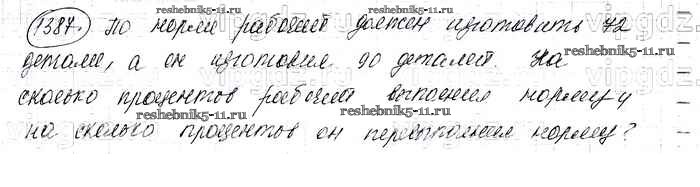 1387. По норме рабочий должен изготовить 72
детали, а он изготовил 90 деталей. На
сколько процентов рабочий выполнил норму и
на сколько процентов он перевыполнил норму?
reshebnik5-11.ru
reshebnik5-11.ru
reshebnik5-11.ru
reshebnik5-11.ru